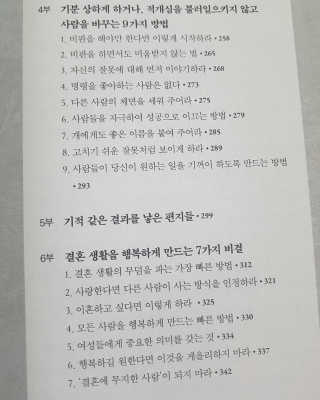 4부 기분 상하게 하거나, 적개심을 불러일으키지 않고
사람을 바꾸는 9가지 방법
1. 비판을 해야만 한다면 이렇게 시작하라 • 258
2. 비판을 하면서도 미움받지 않는 법 • 265
3. 자신의 잘못에 대해 먼저 이야기하라 • 268
4. 명령을 좋아하는 사람은 없다 • 273
5. 다른 사람의 체면을 세워 주어라 • 275
6. 사람들을 자극하여 성공으로 이끄는 방법 • 279
7. 개에게도 좋은 이름을 붙여 주어라 • 285
8. 고치기 쉬운 잘못처럼 보이게 하라 • 289
9. 사람들이 당신이 원하는 일을 기꺼이 하도록 만드는 방법
• 293
5부 기적 같은 결과를 낳은 편지들 • 299
6부 결혼 생활을 행복하게 만드는 7가지 비결
1. 결혼 생활의 무덤을 파는 가장 빠른 방법 • 312
2. 사랑한다면 다른 사람이 사는 방식을 인정하라 • 321
3. 이혼하고 싶다면 이렇게 하라 • 325
4. 모든 사람을 행복하게 만드는 빠른 방법 • 330
5. 여성들에게 중요한 의미를 갖는 것 • 334
6. 행복하길 원한다면 이것을 게을리하지 마라 • 337
7. ‘결혼에 무지한 사람’이 되지 마라 • 342